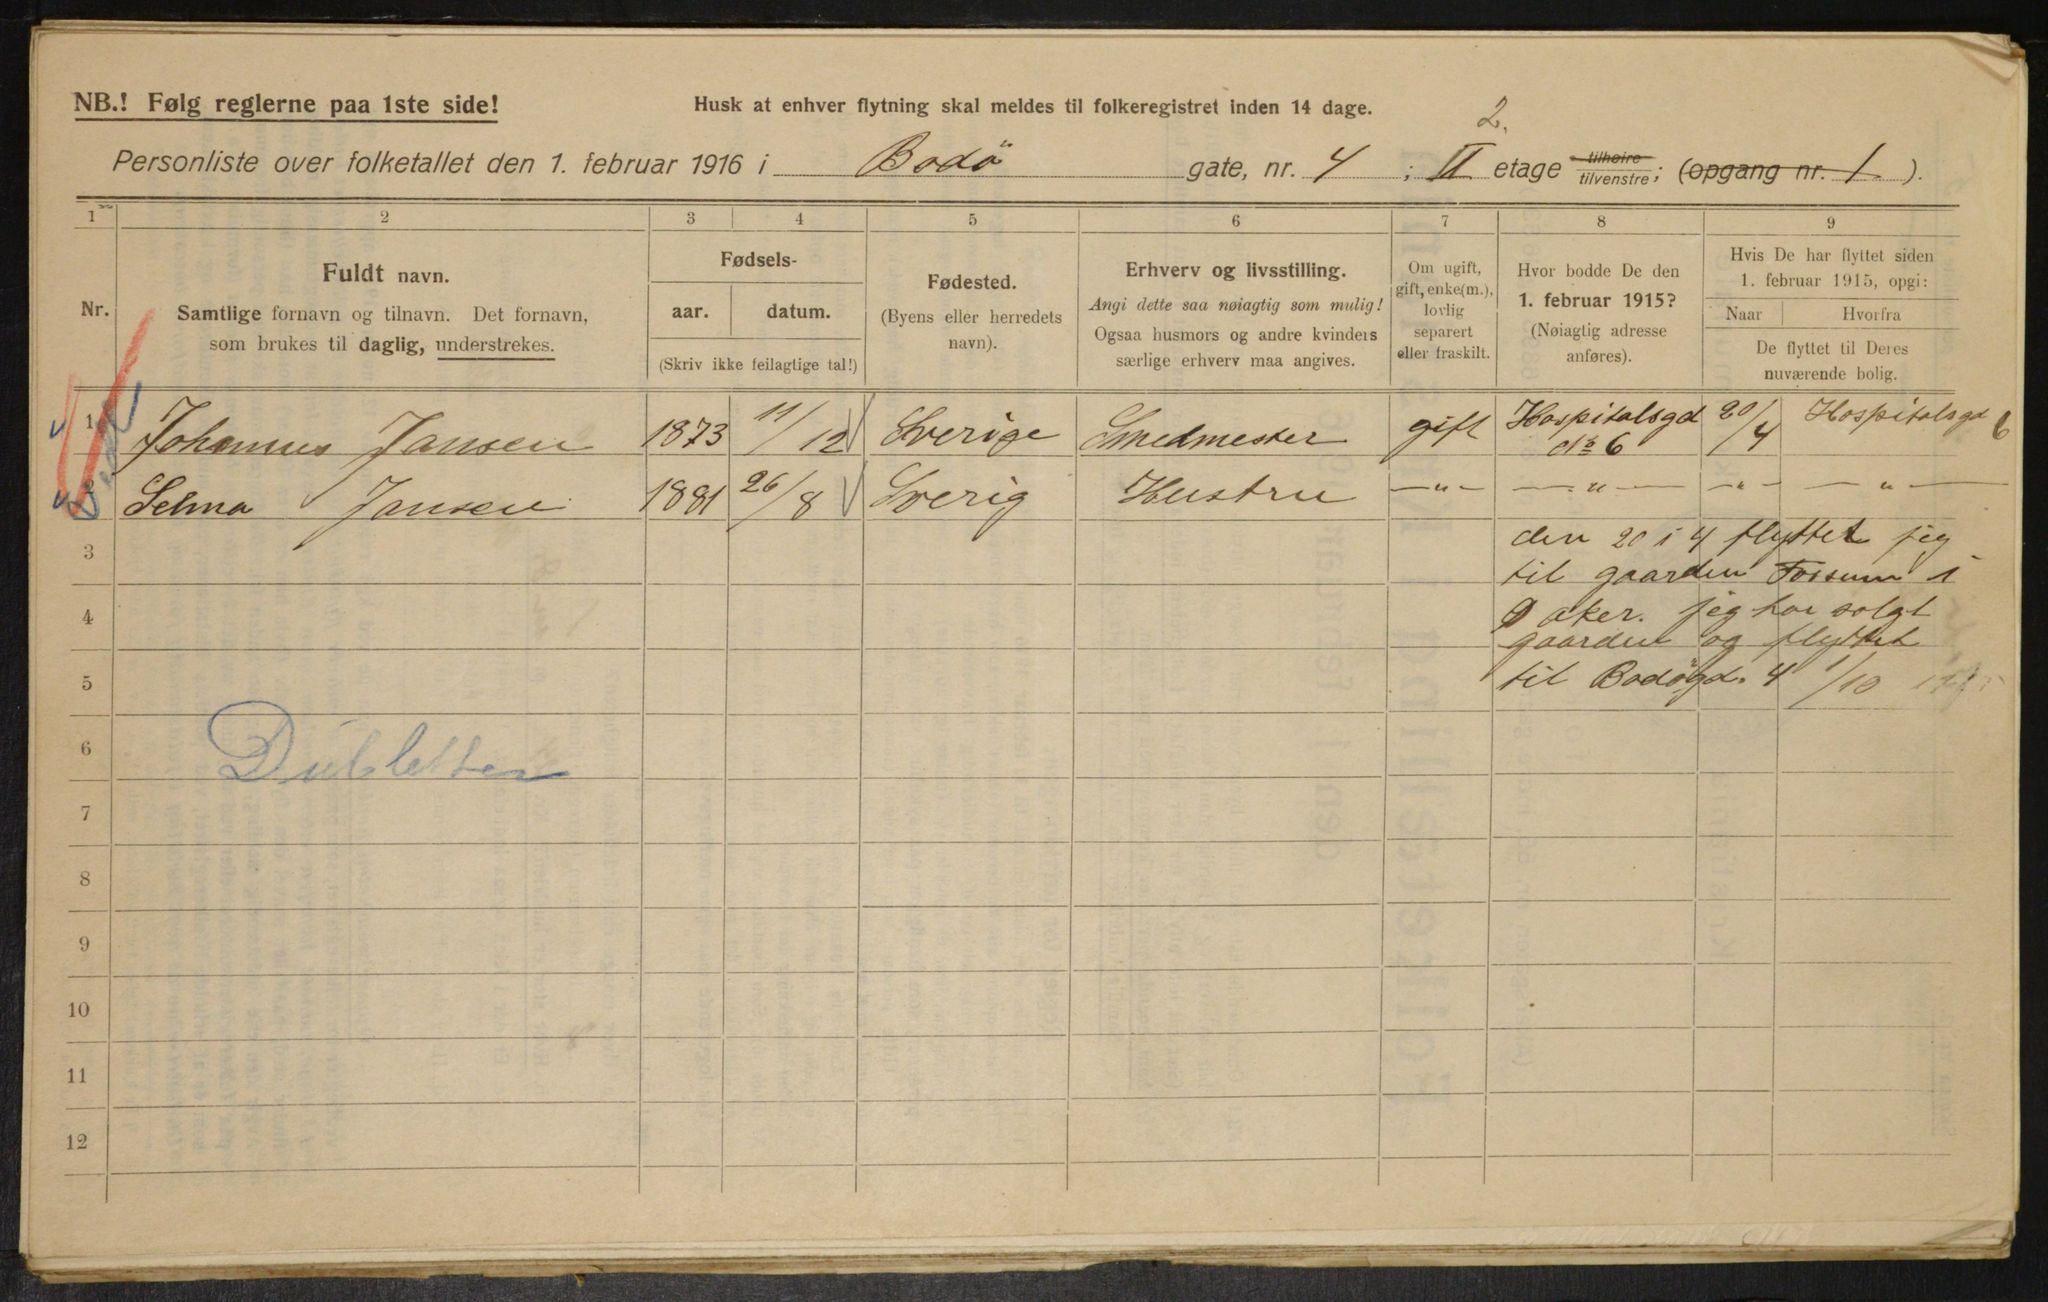 NB.! Følg reglerne paa 1ste side!
Husk at enhver flytning skal meldes til folkeregistret inden 14 dage.
2.
Personliste over folketallet den 1. februar 1916 i Bodö gate, nr. 4 ; II etage tilhøire tilvenstre; (opgang nr. 1 ).
1 2 3 4 5 6 7 8 9
Nr.
Fuldt navn.
Samtlige fornavn og tilnavn. Det fornavn,
som brukes til daglig, understrekes.
Fødsels-
aar. datum.
(Skriv ikke feilagtige tal!)
Fødested.
(Byens eller herredets
navn).
Erhverv og livsstilling.
Angi dette saa nøiagtig som mulig!
Ogsaa husmors og andre kvinders
særlige erhverv maa angives.
Om ugift,
gift, enke(m.),
lovlig
separert
eller fraskilt.
Hvor bodde De den
1. februar 1915?
(Nøiagtig adresse
anføres).
Hvis De har flyttet siden
1. februar 1915, opgi:
Naar Hvorfra
De flyttet til Deres
nuværende bolig.
1 Johannes Jansen 1873 11/12 Sverige Smedmester gift Hospitalsgd No 6 20/4 Hospitalsgd 6
2 Selma Jansen 1881 26/8 Sverig Hustru —"— —"— —"— —"—
3 den 20 i 4 flyttet jeg
til gaarden Fossum i
4 Ø aker. jeg har solgt
gaarden og flyttet
5 til Bodögd. 4 1/10
6 Dubletter
7
8
9
10
11
12